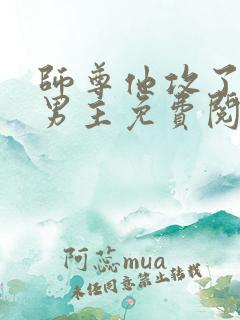 師尊他攻了
男主免費閱
阿蕊mua
未经同意禁止转载